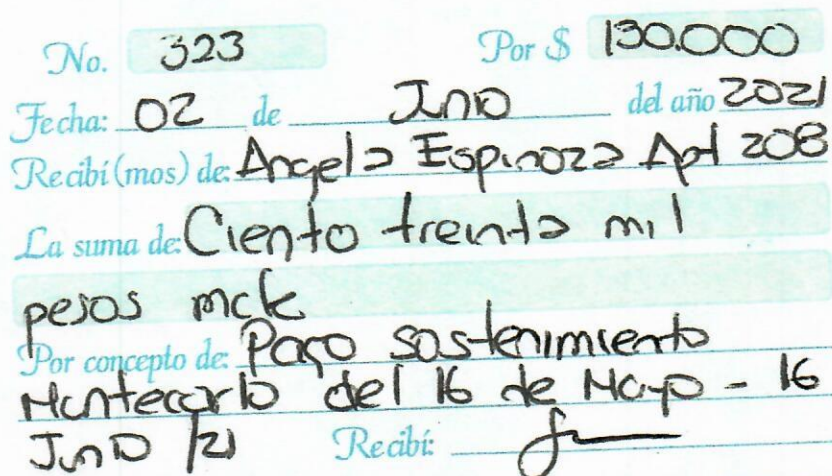 No. 323 Por $ 130.000
Fecha: 02 de Junio del año 2021
Recibí(mos) de: Angela Espinoza Apt 208
La suma de: Ciento treinta mil
pesos mcte
Por concepto de: Pago sostenimiento
Montecarlo del 16 de Mayo - 16
Junio /21 Recibí: